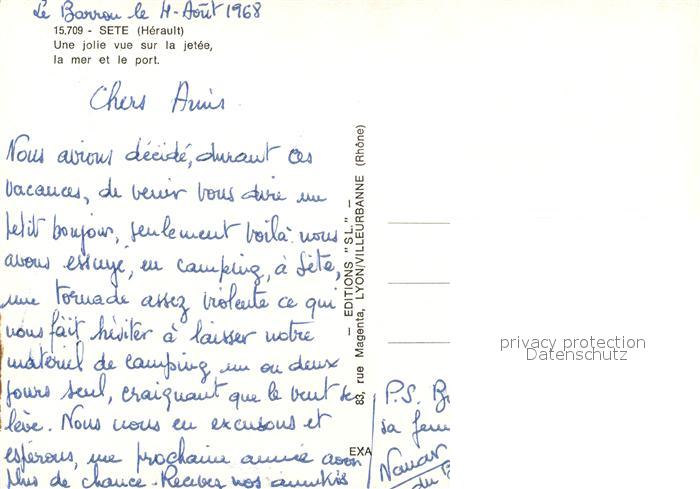 Le Barrou le 4-Août 1968
15.709 - SETE (Hérault)
Une jolie vue sur la jetée,
la mer et le port.
Chers Amis
Nous avions décidé, durant ces
vacances, de venir vous dire un
petit bonjour, seulement voilà nous
avons essuyé, en camping, à Sète,
une tornade assez violente ce qui
nous fait hésiter à laisser notre
matériel de camping un ou deux
jours seul, craignant que le vent se
lève. Nous nous en excusons et
espérons, une prochaine année avoir
plus de chance. Recevez nos amitiés
— EDITIONS "S.L." —
83, rue Magenta, LYON/VILLEURBANNE (Rhône)
EXA
privacy protection
Datenschutz
P.S.
sa